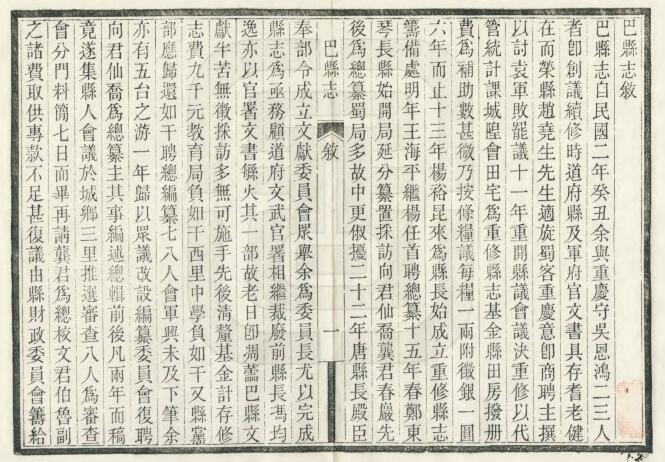 巴縣志敘
巴縣志自民國二年癸丑余與重慶守吳恩鴻二三人
者卽創議續修時道府縣及軍府官文書具存耆老健
在而榮縣趙堯生先生適旋蜀客重慶意卽商聘主撰
以討袁軍敗罷議十一年重開縣議會議決重修以代
管統計課城隍會田宅爲重修縣志基金縣田房撥冊
費爲補助數甚微乃按條糧議每糧一兩附徵銀一圓
六年而止十三年楊裕昆來爲縣長始成立重修縣志
籌備處明年王海平繼楊任首聘總纂十五年春鄭東
琴長縣始開局延分纂置採訪向君仙喬龔君春巖先
後爲總纂蜀局多故中更俶擾二十二年唐縣長殿臣
巴縣志
敘
一
奉部令成立文獻委員會眾舉余爲委員長尤以完成
縣志爲亟務顧道府文武官署相繼裁廢前縣長馮均
逸亦以官署文書餧火其一部故老日卽凋薾巴縣文
獻半苦無徵採訪多無可施手先後淸釐基金計存修
志費九千元教育局負如干西里中學負如干又縣黨
部應歸還如干聘總編纂七八人會軍興未及下筆余
亦有五台之游一年歸以眾議改設編纂委員會復聘
向君仙喬爲總纂主其事編述總輯前後凡兩年而稿
竟遂集縣人會議於城鄉三里推選審查八人爲審查
會分門料簡七日而畢再請龔君爲總校文君伯魯副
之諸費取供專款不足甚復議由縣財政委員會籌給